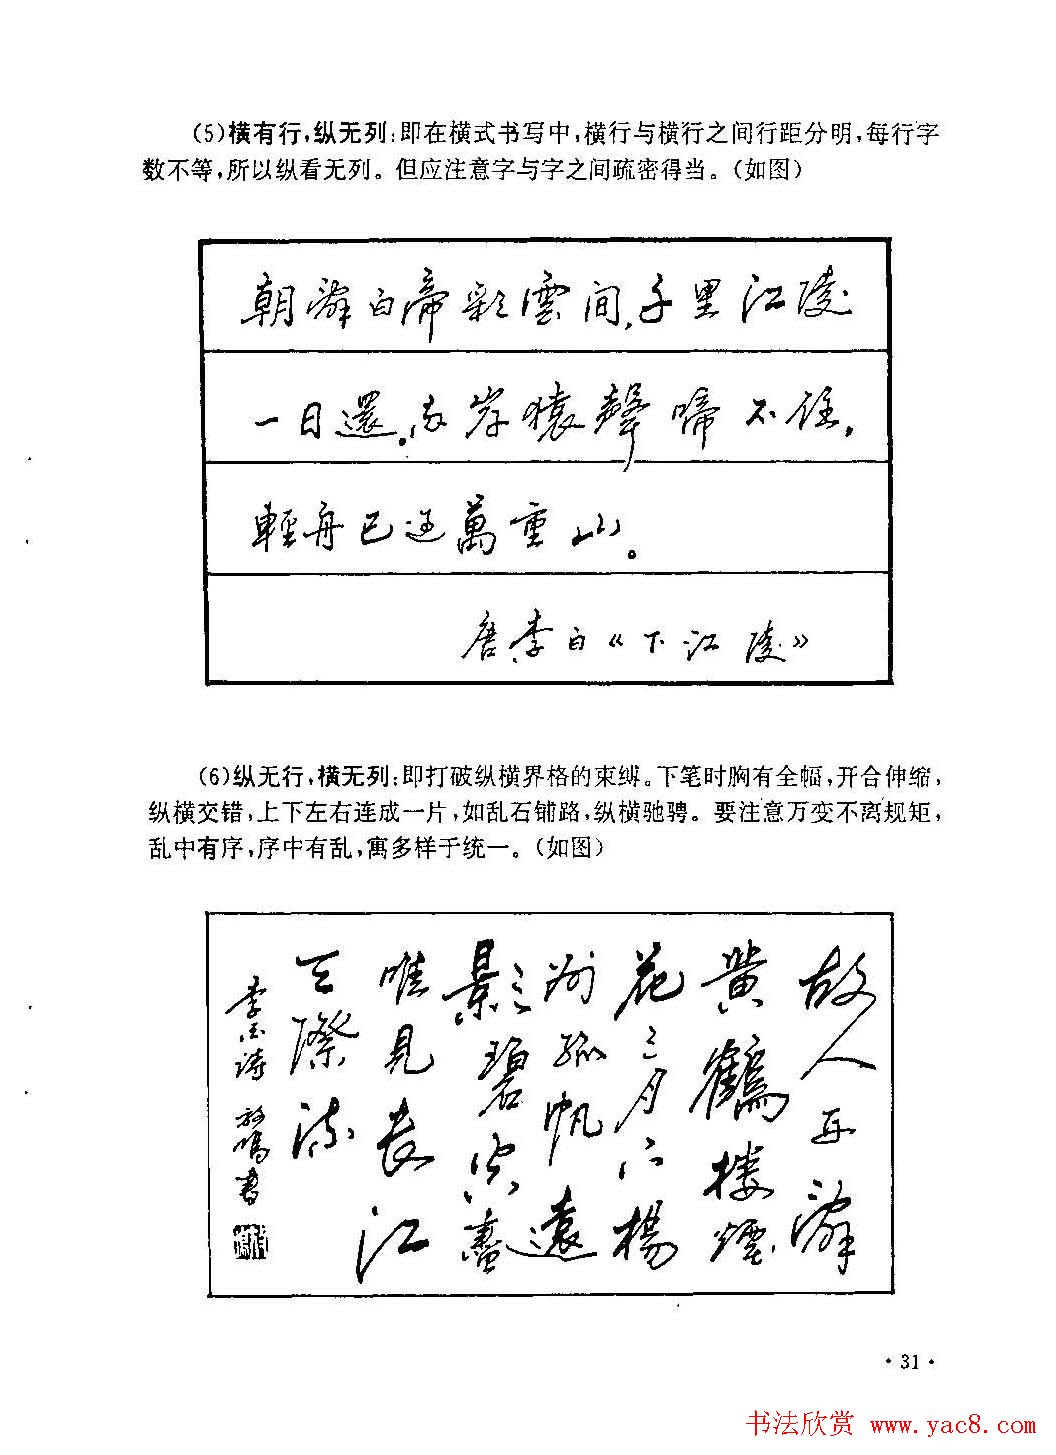 (5)横有行,纵无列:即在横式书写中,横行与横行之间行距分明,每行字
数不等,所以纵看无列。但应注意字与字之间疏密得当。(如图)
朝辭白帝彩雲間,千里江陵
一日還。両岸猿聲啼不住,
輕舟已过萬重山。
唐李白《下江陵》
(6)纵无行,横无列:即打破纵横界格的束缚。下笔时胸有全幅,开合伸缩,
纵横交错,上下左右连成一片,如乱石铺路,纵横驰骋。要注意万变不离规矩,
乱中有序,序中有乱,寓多样于统一。(如图)
故人西辭
黄鶴楼煙
花三月下楊
州孤帆遠
影碧空盡
唯見長江
天際流
李白诗
書
·31·
书法欣赏 www.yac8.com